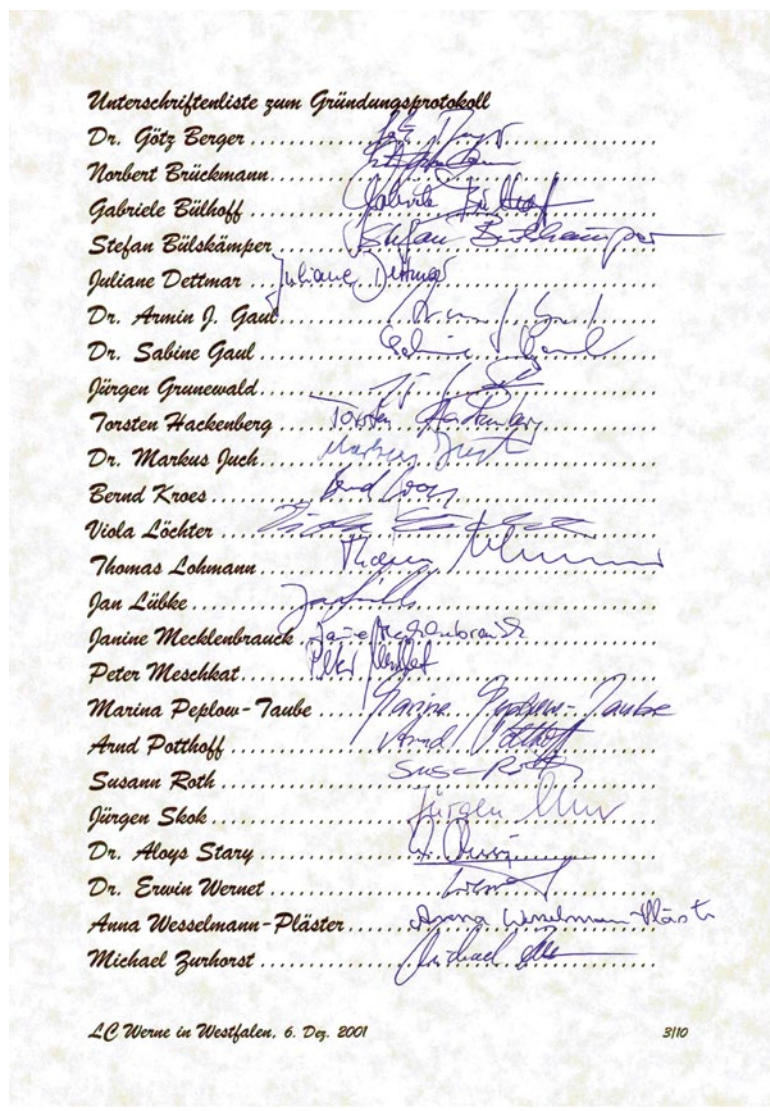 Unterschriftenliste zum Gründungsprotokoll
Dr. Götz Berger
Norbert Brückmann
Gabriele Bülhoff Gabriele Bülhoff
Stefan Bülskämper Stefan Bülskämper
Juliane Dettmar Juliane Dettmar
Dr. Armin J. Gaul
Dr. Sabine Gaul Sabine Gaul
Jürgen Grunewald
Torsten Hackenberg Torsten Hackenberg
Dr. Markus Juch Markus Juch
Bernd Kroes
Viola Löchter Viola
Thomas Lohmann Thomas
Jan Lübke
Janine Mecklenbrauck Janine Mecklenbrauck
Peter Meschkat Peter
Marina Peplow-Taube Marina Peplow-Taube
Arnd Potthoff Arnd Potthoff
Susann Roth Roth
Jürgen Skok Jürgen
Dr. Aloys Stary
Dr. Erwin Wernet
Anna Wesselmann-Pläster Anna Wesselmann-Pläster
Michael Zurhorst Michael
LC Werne in Westfalen, 6. Dez. 2001 3/10